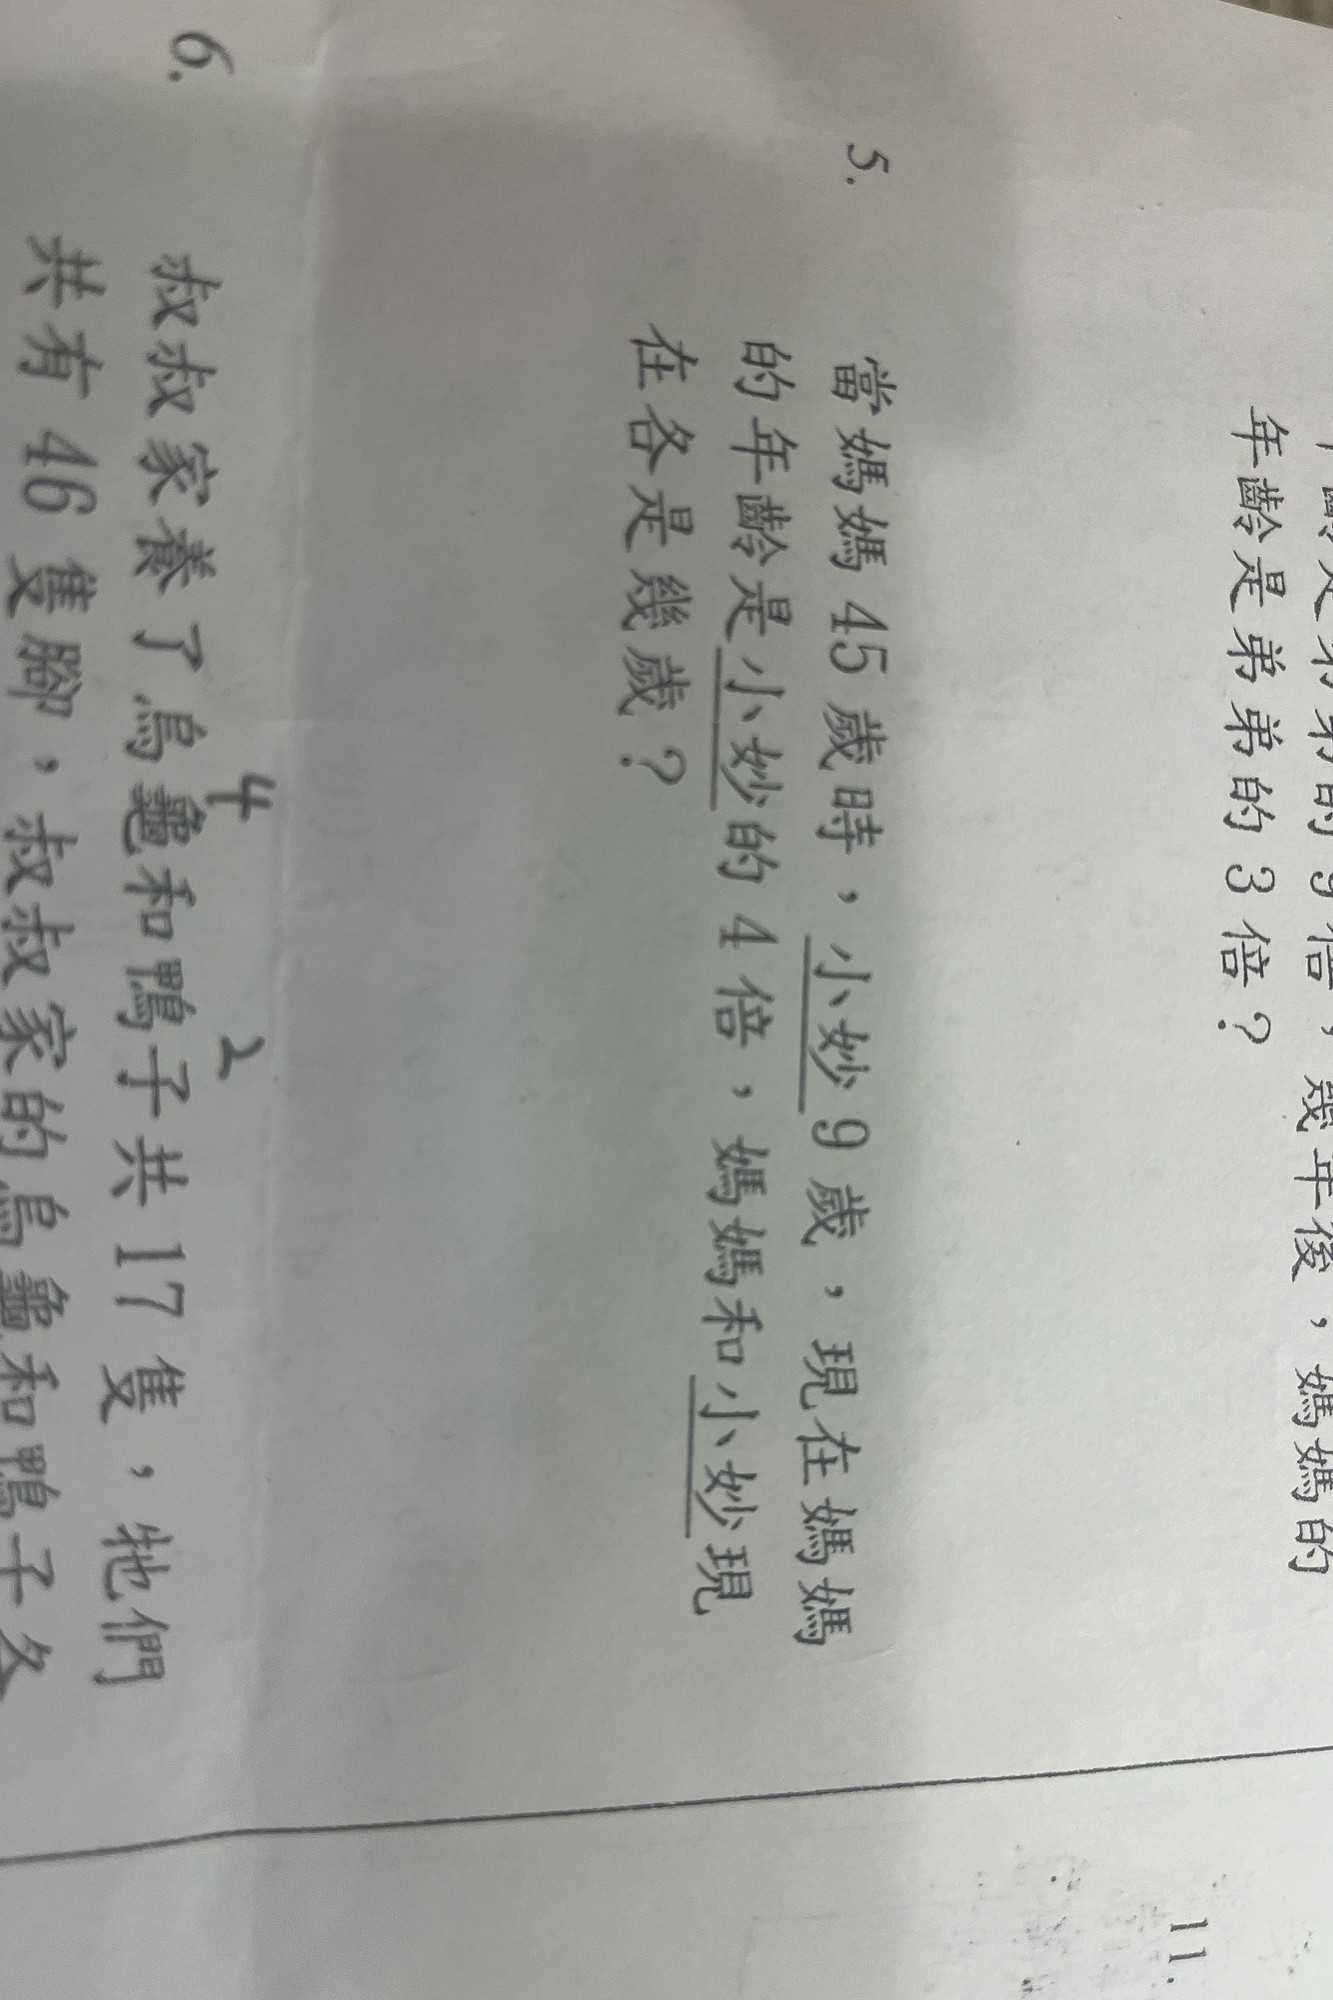 年齡是弟弟的 3 倍？
5.
當媽媽 45 歲時，小妙 9 歲，現在媽媽
的年齡是小妙的 4 倍，媽媽和小妙現
在各是幾歲？
4 2
6. 叔叔家養了烏龜和鴨子共 17 隻，牠們
共有 46 隻腳，叔叔家的烏龜和鴨子各
11.